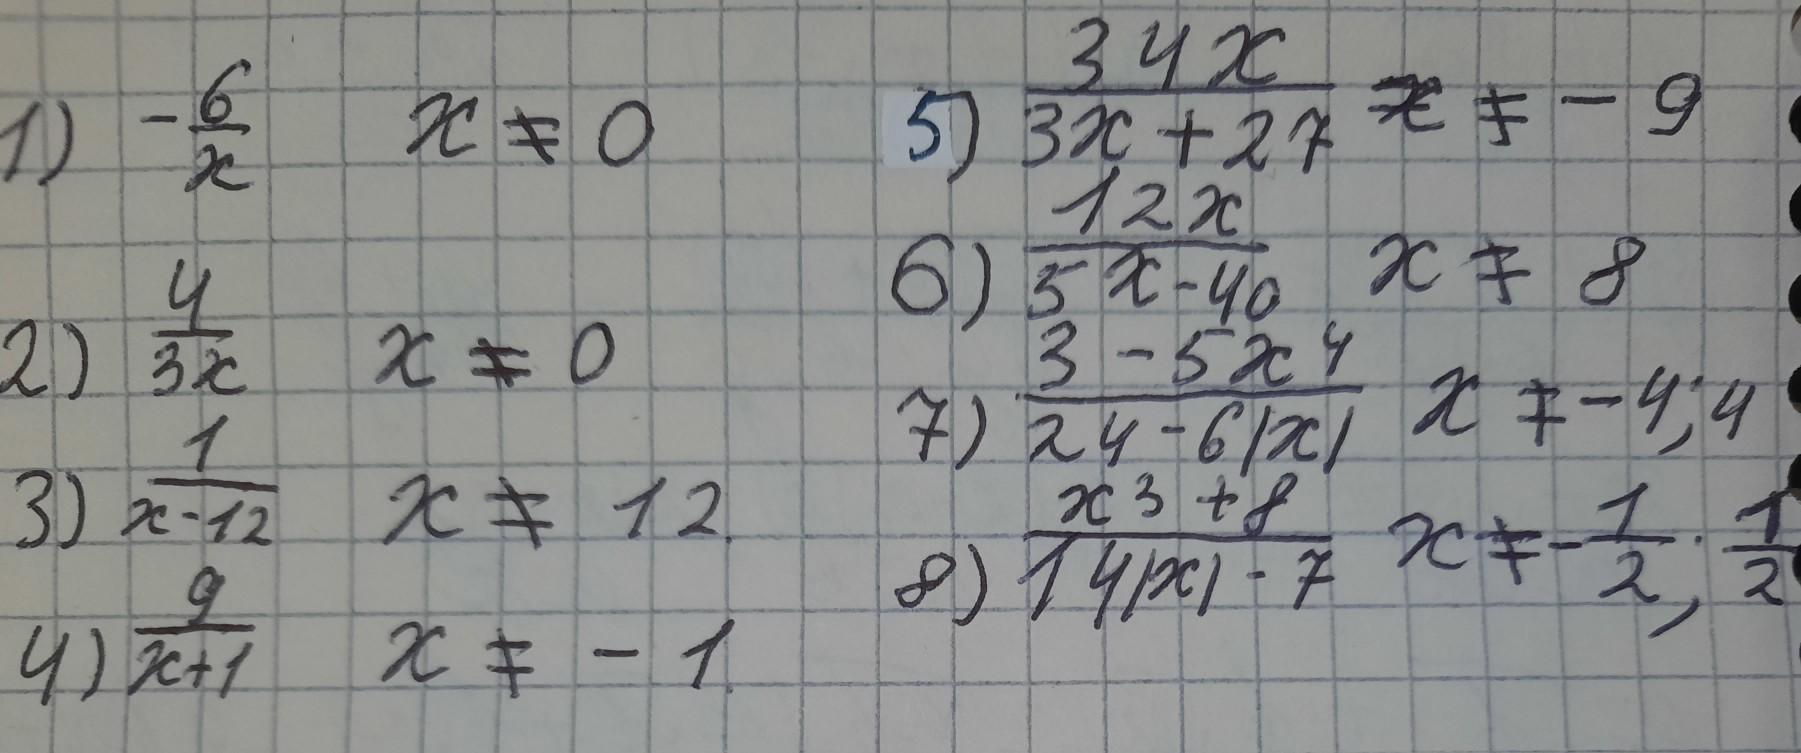 1) -6/x x ≠ 0
2) 4/3x x ≠ 0
3) 1/x-12 x ≠ 12
4) 9/x+1 x ≠ -1
5) 34x/3x+27 x ≠ -9
6) 12x/5x-40 x ≠ 8
7) 3-5x⁴/24-6|x| x ≠ -4; 4
8) x³+8/14|x|-7 x ≠ -1/2; 1/2